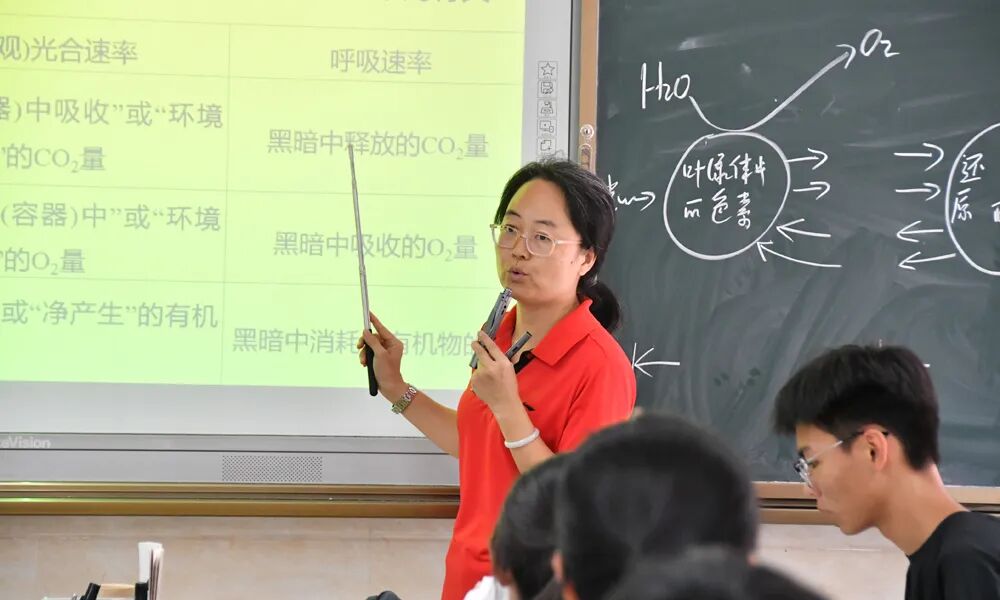 观)光合速率
呼吸速率
器)中吸收”或“环境
”的CO₂量
黑暗中释放的CO₂量
(容器)中”或“环境
”的O₂量
黑暗中吸收的O₂量
或“净产生”的有机
黑暗中消耗 有机物的
Vision
H2O
O2
叶绿体中
色素
还
原